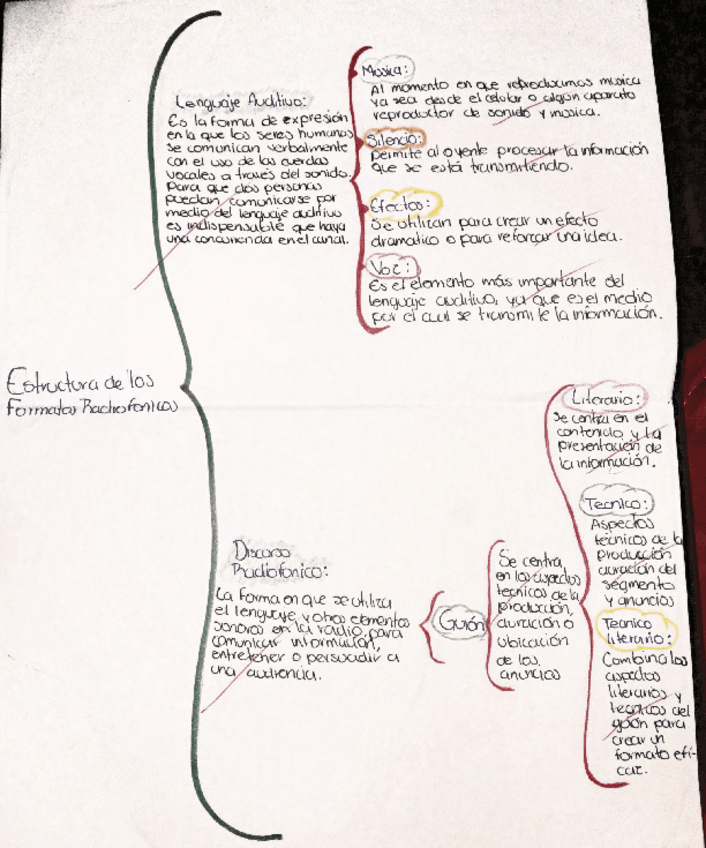 Estructura de los
Formatos Radiofonicos
Lenguaje Auditivo:
Es la forma de expresión
en la que los seres humanos
se comunican verbalmente
con el uso de las cuerdas
vocales a través del sonido.
Para que dos personas
puedan comunicarse por
medio del lenguaje auditivo
es indispensable que haya
una concurrencia en el canal.
Musica:
Al momento en que reproducimos musica
ya sea desde el celular o algún aparato
reproductor de sonido y musica.
Silencio:
Permite al oyente procesar la información
que se está transmitiendo.
Efectos:
Se utilizan para crear un efecto
dramatico o para reforzar una idea.
Voz:
Es el elemento más importante del
lenguaje auditivo, ya que es el medio
por el cual se transmite la información.
Discurso
Radiofonico:
La forma en que se utiliza
el lenguaje y otros elementos
sonoros en la radio para
comunicar información,
entretener o persuadir a
una audiencia.
Guión
Se centra
en los aspectos
tecnicos de la
producción,
duración o
ubicación
de los
anuncios
Literario:
Se centra en el
contenido y la
presentación de
la información.
Tecnico:
Aspectos
técnicos de la
producción
duración del
segmento
y anuncios
Tecnico
literario:
Combina los
aspectos
literarios y
tecnicos del
guión para
crear un
formato efi-
caz.